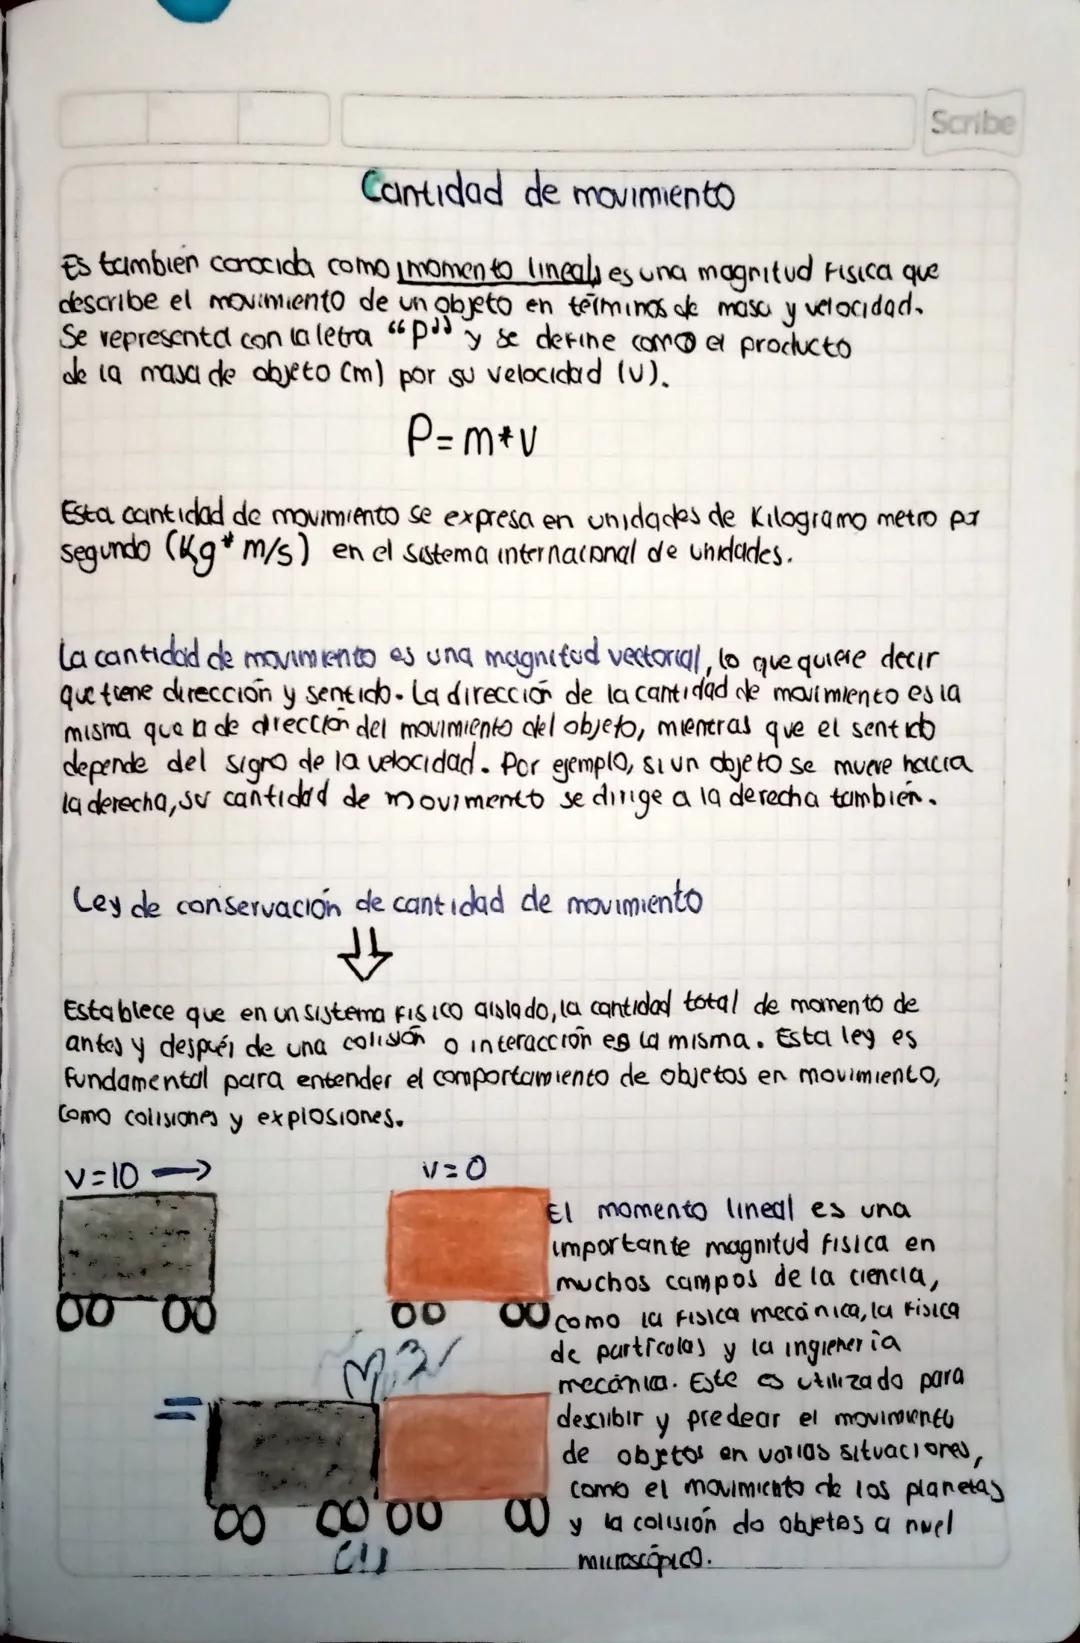 Scribe
Cantidad de movimiento
Es también conocida como momento lineal, es una magnitud Fisica que
describe el movimiento de un objeto en términos de masa y velocidad.
Se representa con la letra "P" y se define como el producto
de la masa de objeto (m) por su velocidad (v).
P=m*v
Esta cantidad de movimiento se expresa en unidades de Kilogramo metro por
segundo (Kg*m/s) en el sistema internacional de unidades.
La cantidad de movimiento es una magnitud vectorial, lo que quiere decir
que tiene dirección y sentido. La dirección de la cantidad de movimiento es la
misma que la de dirección del movimiento del objeto, mientras que el sentido
depende del signo de la velocidad. Por ejemplo, si un objeto se mueve hacia
la derecha, su cantidad de movimento se dirige a la derecha también.
Ley de conservación de cantidad de movimiento
Establece que en un sistema Fisico aislado, la cantidad total de momento de
antes y después de una colisión o interacción es la misma. Esta ley es
Fundamental para entender el comportamiento de objetos en movimiento,
Como colisiones y explosiones.
V=10
V=0
El momento lineal es una
importante magnitud Fisica en
muchos campos de la ciencia,
como la Fisica mecánica, la Fisica
de particulas y la ingieneria
mecánica. Este es utilizado para
describir y predecir el movimiento
de objetos en varias situaciones,
=
como el movimiento de los planetas
y la colisión de objetos a nivel
microscópico.